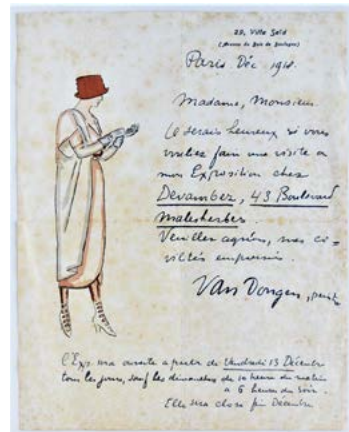 29, Villa Saïd
(Avenue du Bois de Boulogne)
Paris Déc 1918.
Madame, Monsieur.
Je serais heureux si vous
vouliez faire une visite a
mon Exposition chez
Devambez, 43 Boulevard
Malesherbes.
Veuillez agréer, mes ci-
vilités empressées.
Van Dongen, peintre
l'Expo sera ouverte a partir de Vendredi 13 Décembre
tous les jours, sauf les dimanches de 10 heures du matin
a 6 heures du soir.
Elle sera close fin Décembre